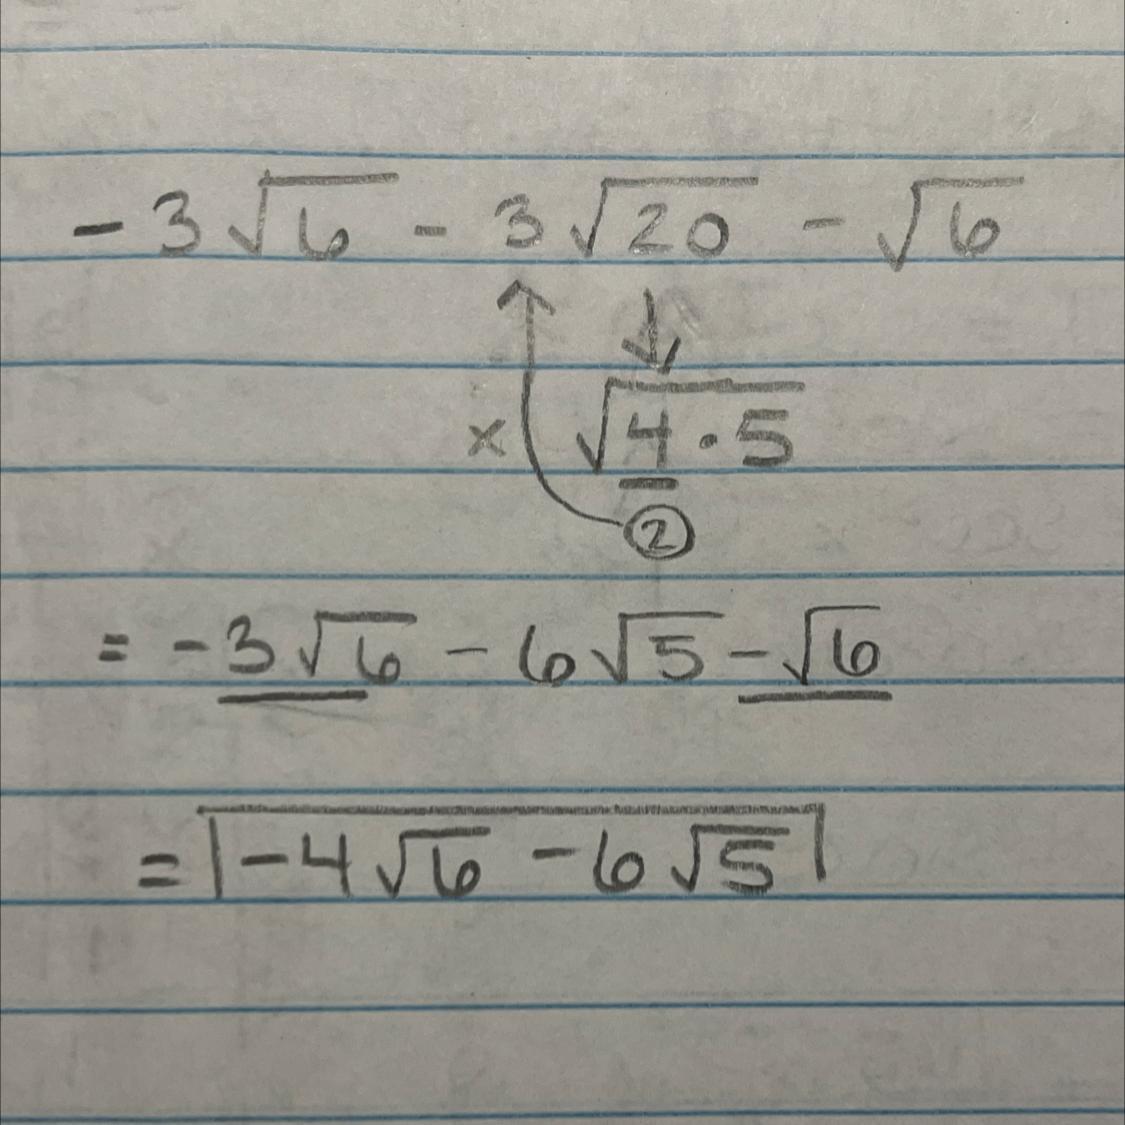 -3√6 - 3√20 - √6
× √4·5
2
= -3√6 - 6√5 - √6
= -4√6 - 6√5